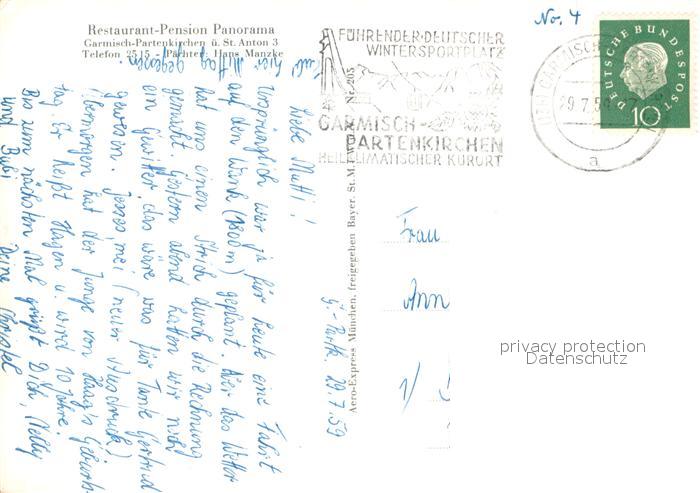 Restaurant-Pension Panorama
Garmisch-Partenkirchen ü. St. Anton 3
Telefon 2515 - Pächter: Hans Manzke
hier Mittag gegessen.
G.-Partk. 29.7.59
Liebe Mutti!
Ursprünglich war ja für heute eine Fahrt
auf den Wank (1800m) geplant. Aber das Wetter
hat uns einen Strich durch die Rechnung
gemacht. Gestern abend hatten wir nicht
ein Gewitter, das wäre was für Tante Gertrud
gewesen. Jesses mei (neuer Ausdruck)
Übermorgen hat der Junge von Haag's Geburts-
tag. Er heißt Hagen u. wird 10 Jahre.
Bis zum nächsten Mal grüßt Dich, Nelly
und Bubi
Deine Christel
Aero-Express München, freigegeben Bayer. St.M.f.W.V. Nr. 205
No. 4
FÜHRENDER DEUTSCHER
WINTERSPORTPLATZ
GARMISCH-
PARTENKIRCHEN
HEILKLIMATISCHER KURORT
GARMISCH
29.7.59
a
DEUTSCHE BUNDESPOST
10
Frau
Ann
1/
privacy protection
Datenschutz